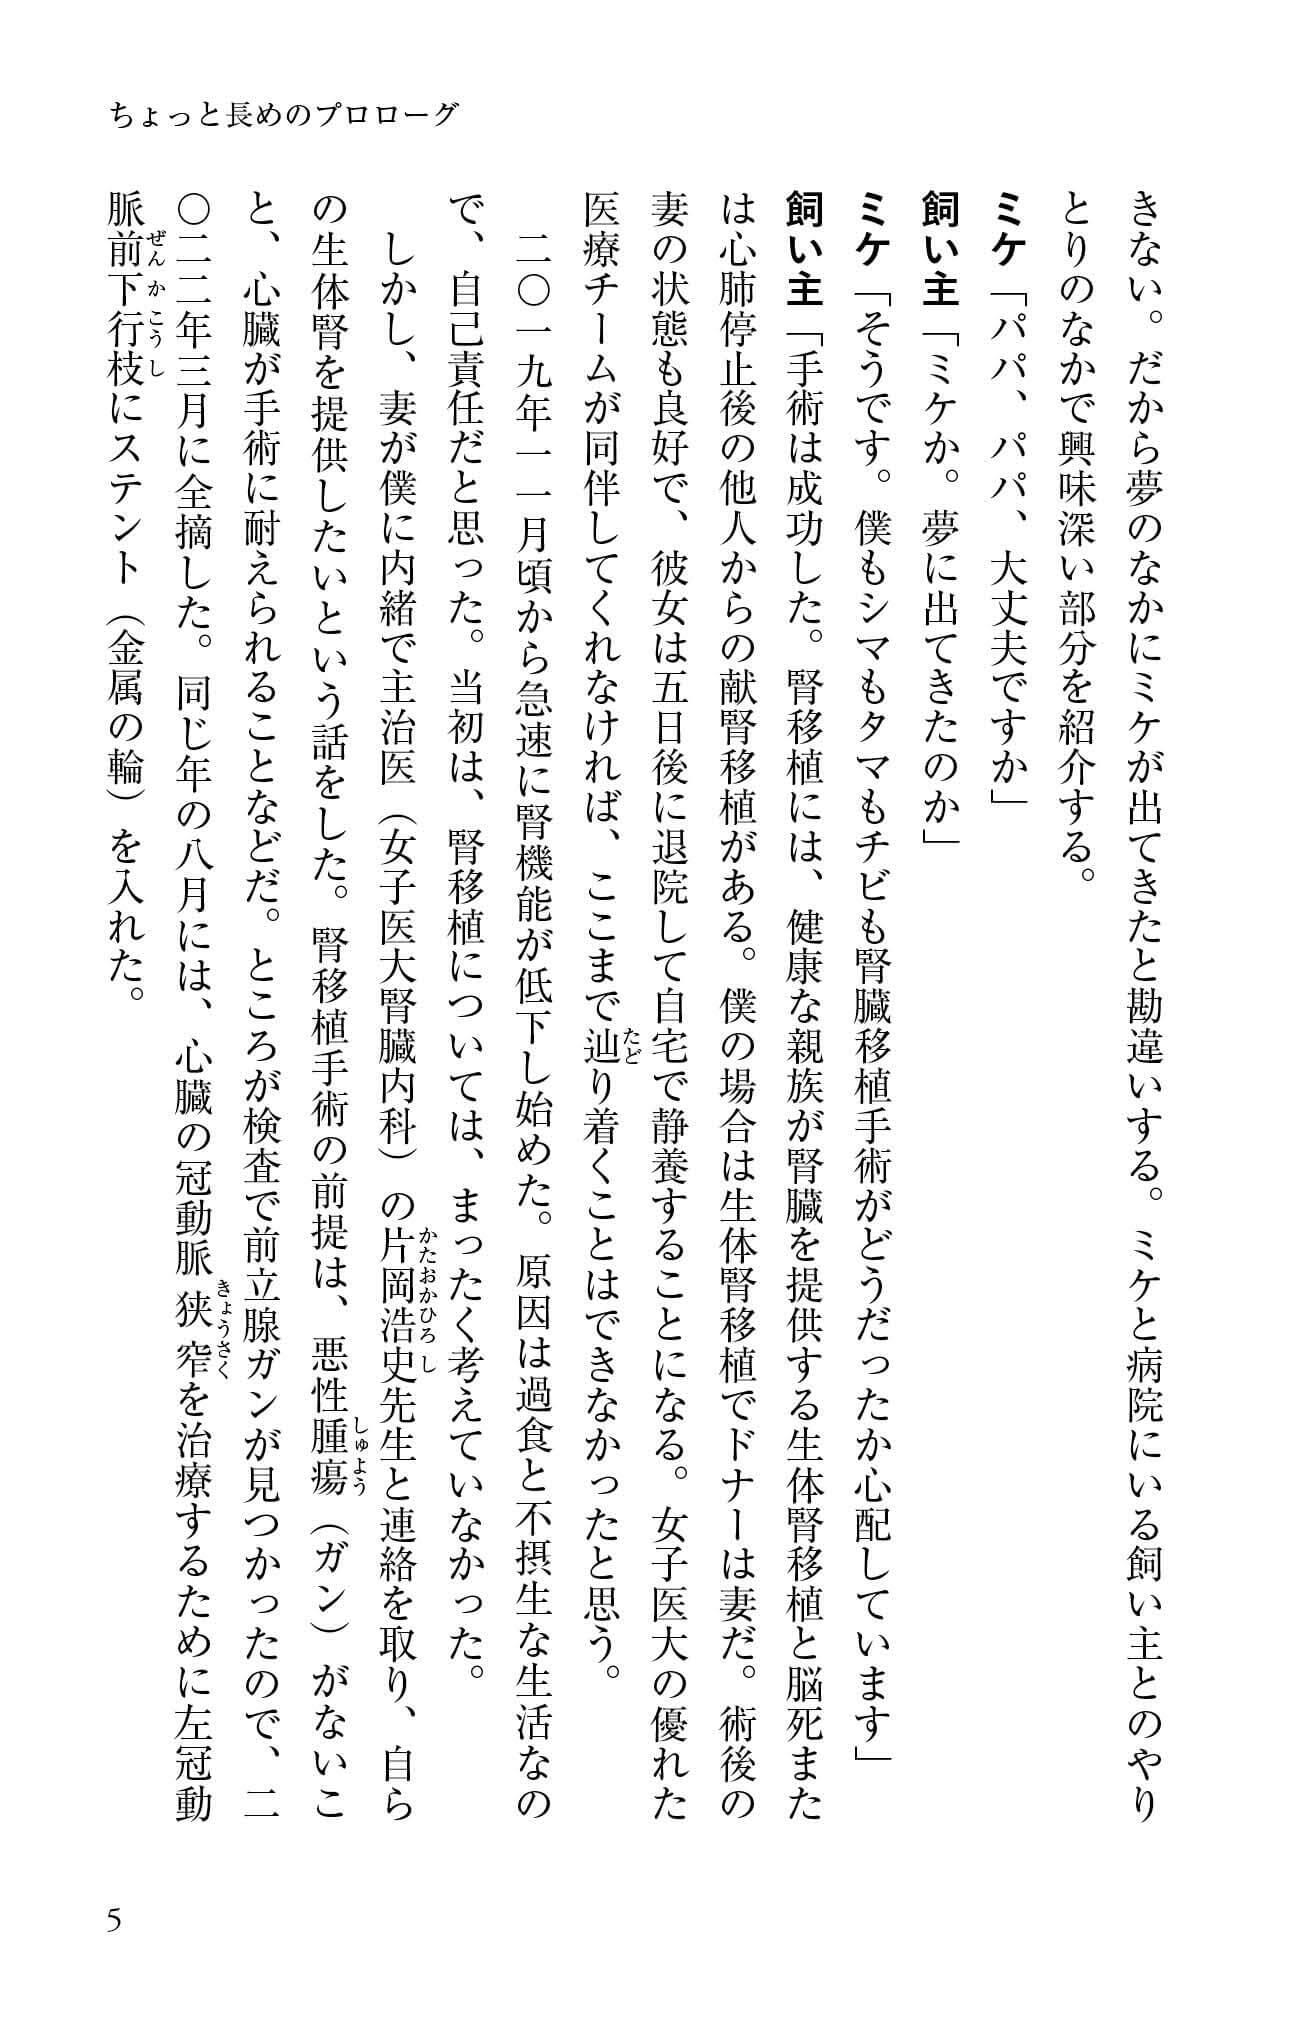 ちょっと長めのプロローグ
きない。だから夢のなかにミケが出てきたと勘違いする。ミケと病院にいる飼い主とのやり
とりのなかで興味深い部分を紹介する。
ミケ「パパ、パパ、大丈夫ですか」
飼い主「ミケか。夢に出てきたのか」
ミケ「そうです。僕もシマもタマもチビも腎臓移植手術がどうだったか心配しています」
飼い主「手術は成功した。腎移植には、健康な親族が腎臓を提供する生体腎移植と脳死また
は心肺停止後の他人からの献腎移植がある。僕の場合は生体腎移植でドナーは妻だ。術後の
妻の状態も良好で、彼女は五日後に退院して自宅で静養することになる。女子医大の優れた
医療チームが同伴してくれなければ、ここまで辿り着くことはできなかったと思う。
たど
二〇一九年一一月頃から急速に腎機能が低下し始めた。原因は過食と不摂生な生活なの
で、自己責任だと思った。当初は、腎移植については、まったく考えていなかった。
しかし、妻が僕に内緒で主治医（女子医大腎臓内科）の片岡浩史先生と連絡を取り、自ら
かたおかひろし
の生体腎を提供したいという話をした。腎移植手術の前提は、悪性腫瘍（ガン）がないこ
しゅよう
と、心臓が手術に耐えられることなどだ。ところが検査で前立腺ガンが見つかったので、二
〇二二年三月に全摘した。同じ年の八月には、心臓の冠動脈狭窄を治療するために左冠動
きょうさく
脈前下行枝にステント（金属の輪）を入れた。
ぜんかこうし
5